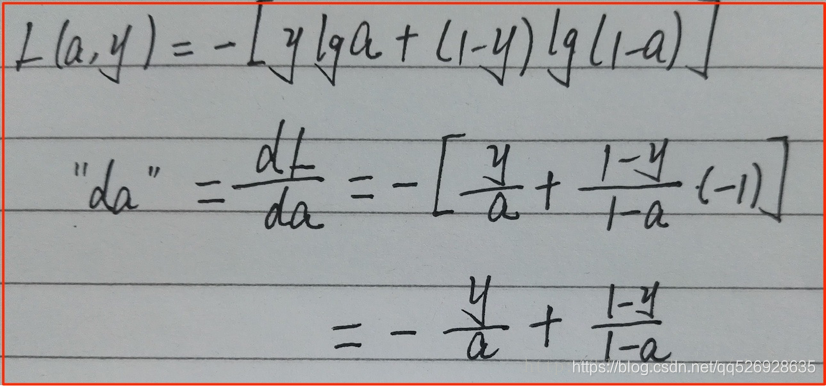 L(a,y) = -[y lg a + (1-y) lg(1-a)]
"da" = dL/da = -[y/a + (1-y)/(1-a) · (-1)]
= - y/a + (1-y)/(1-a)
https://blog.csdn.net/qq526928635